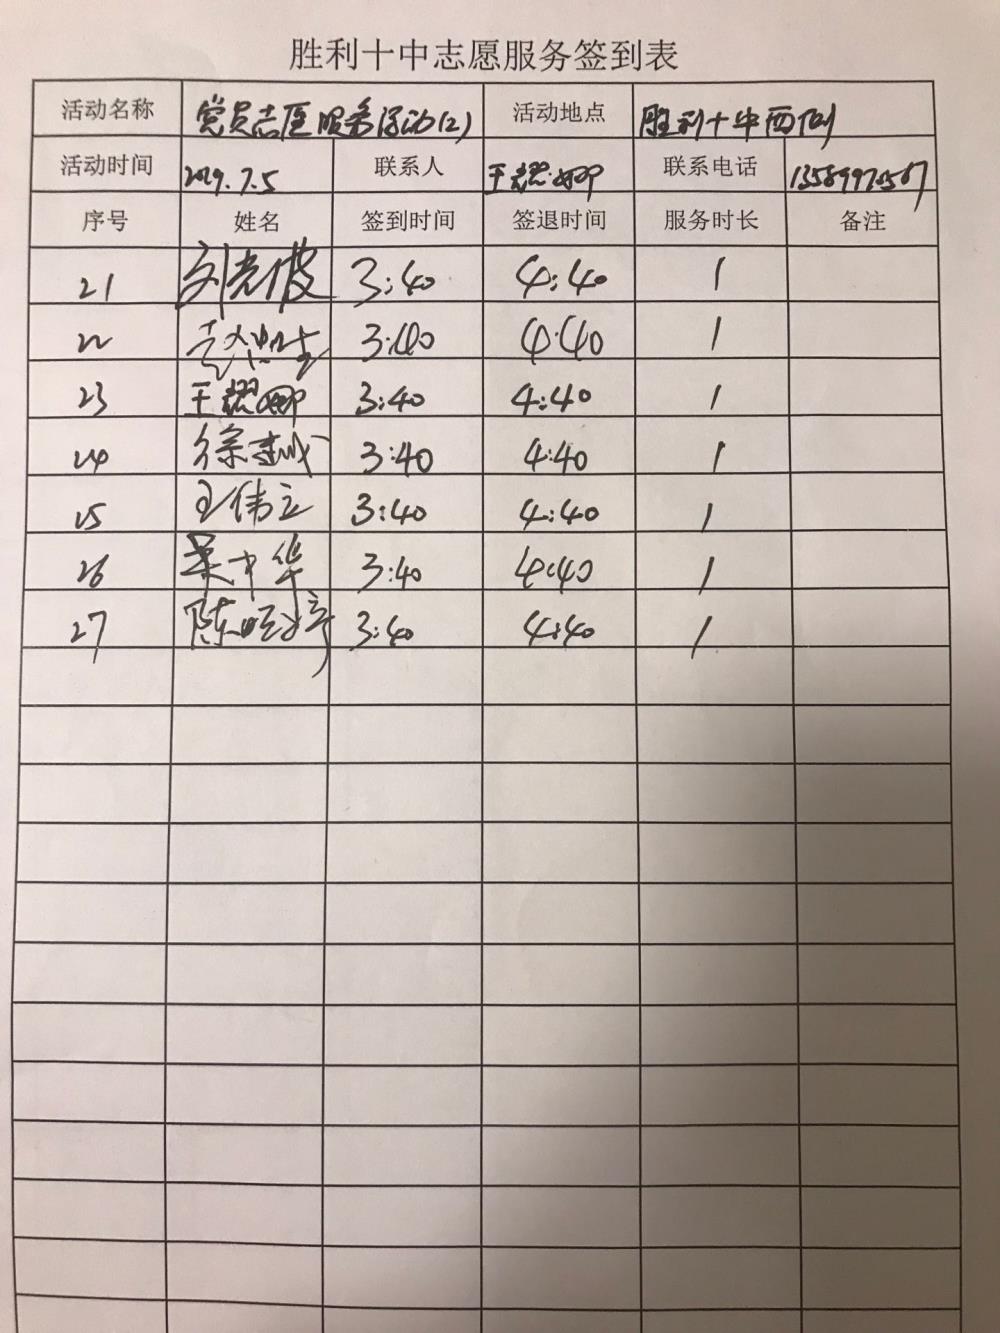 胜利十中志愿服务签到表
活动名称 党员志愿服务活动(2) 活动地点 胜利十中西侧
活动时间 2019.7.5 联系人 王耀娜 联系电话
序号 姓名 签到时间 签退时间 服务时长 备注
21 刘光俊 3:40 4:40 1
22 3:40 4:40 1
23 王耀娜 3:40 4:40 1
24 徐建斌 3:40 4:40 1
25 王伟立 3:40 4:40 1
26 吴中华 3:40 4:40 1
27 陈 3:40 4:40 1